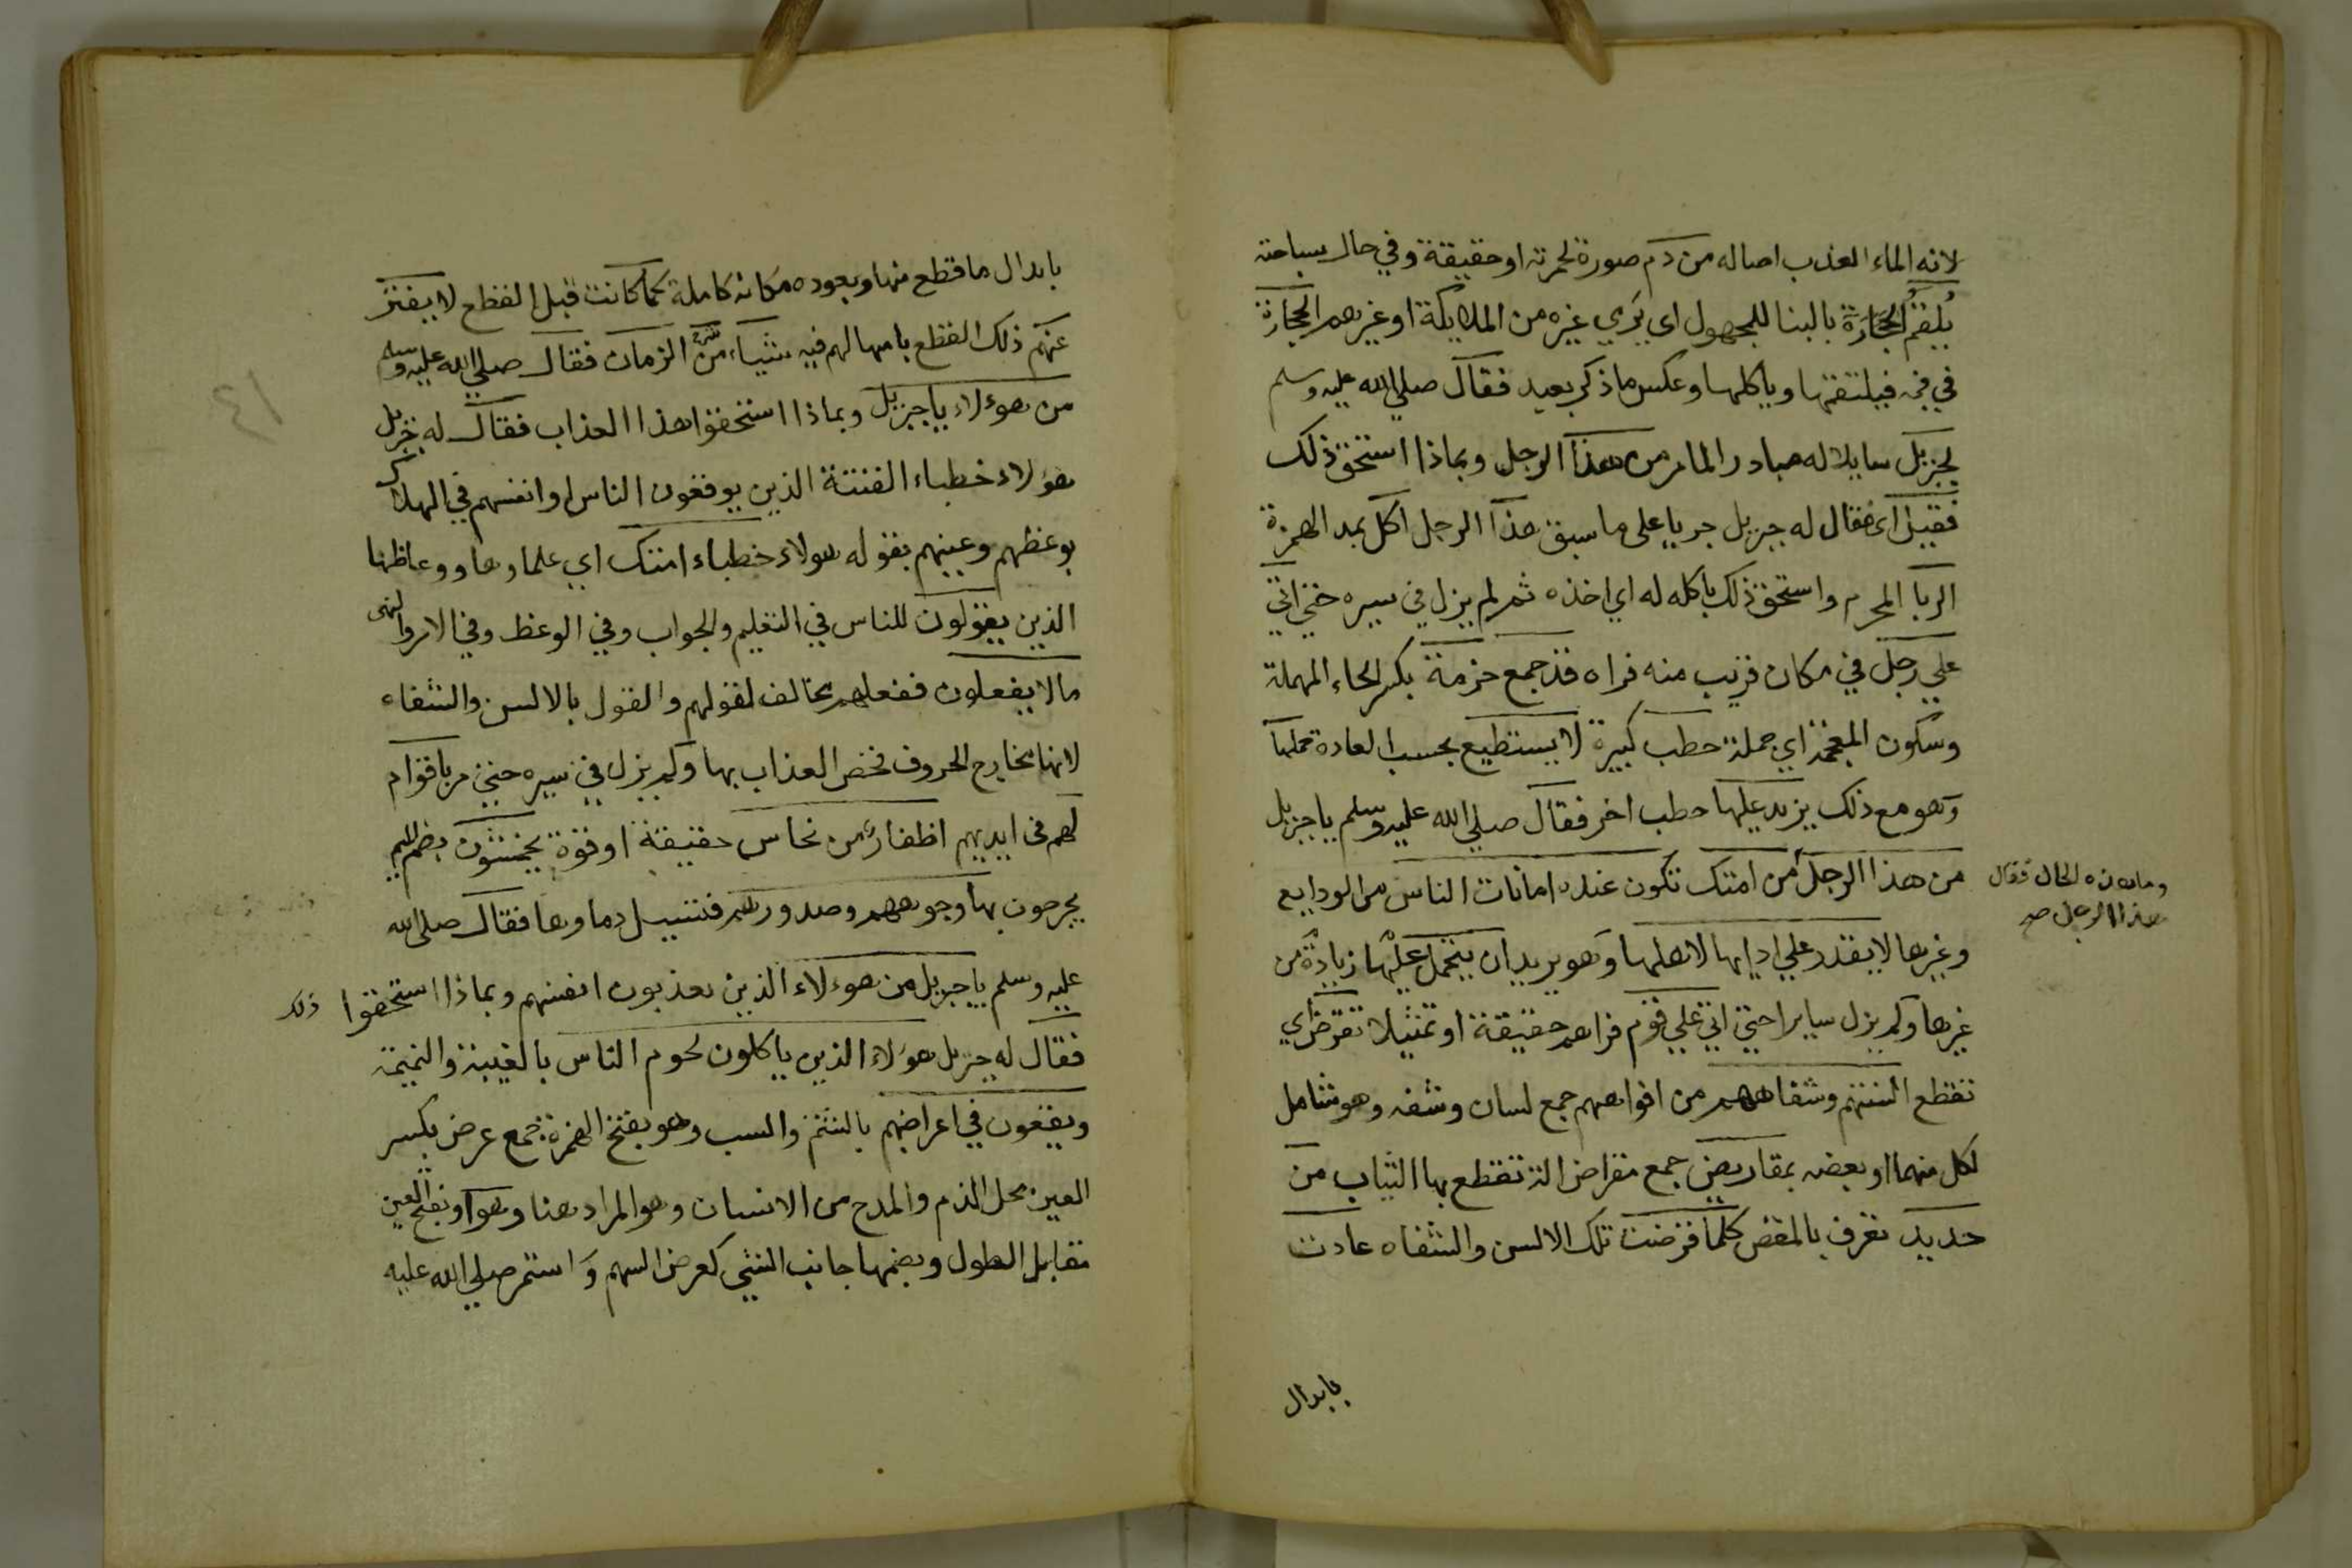 لانه الماء العذب اصاله من دم صورة لحمرته او حقيقة وفي حال سباحته
يُلقَمُ الحجَارَة بالبنا للمجهول اي يَرمي غيره من الملايكة او غيرهم الحجارة
في فمه فيلتقمها وياكلها وعكس ما ذكر بعيد فقال صلي الله عليه وسلم
لجبريل سايلا له مبادر الما مر من هذا الرجل وبماذا استحق ذلك
فقيل اي فقال له جبريل جريا على ما سبق هذا الرجل اكل بمد الهمزة
الربا المحرم واستحق ذلك باكله له اي اخذه ثم لم يزل في سيره حتي اتي
علي رجل في مكان قريب منه فراه قد جمع حزمة بكسر الحاء المهملة
وسكون المعجمة اي جملة حطب كبيرة لا يستطيع بحسب العادة حملها
وهو مع ذلك يزيد عليها حطب اخر فقال صلي الله عليه وسلم يا جبريل
من هذا الرجل من امتك تكون عنده امانات الناس من الودايع
وما هذه الحال فقال
هذا الرجل صح
وغيرها لا يقدر علي ادايها لاهلها وهو يريد ان يتحمل عليها زيادة من
غيرها ولم يزل سايرا حتي اتي علي قوم فراهم حقيقة او تمثيلا تقرض اي
تقطع السنتهم وشفاههم من افواههم جمع لسان وشفه وهو شامل
لكل منهما او بعضه بمقاريض جمع مقراض التي تقطع بها الثياب من
حديد تعرف بالمقص كلما قرضت تلك الالسن والشفاه عادت
بابدال
بابدال ما قطع منها ويعوده مكانه كاملة كما كانت قبل القطع لا يفتر
عنهم ذلك القطع بامهالهم فيه شيأ من الزمان فقال صلي الله عليه وسلم
من هوءلاء يا جبريل وبماذا استحقوا هذا العذاب فقال له جبريل
هؤلاء خطباء الفتنة الذين يوقعون الناس وانفسهم في الهلاك
بوعظهم وعينهم بقوله هولاء خطباء امتك اي علماوها ووعاظها
الذين يقولون للناس في التعليم والجواب وفي الوعظ وفي الامر والنهى
ما لا يفعلون ففعلهم مخالف لقولهم والقول بالالسن والشفاه
لانها مخارج الحروف فخص العذاب بها ولم يزل في سيره حتي مر باقوام
لهم في ايديهم اظفار من نحاس حقيقة او قوة يخمشون بضم الميم
يجرحون بها وجوههم وصدورهم فتسيل دماوها فقال صلى الله
عليه وسلم يا جبريل من هوءلاء الذين يعذبون انفسهم وبماذا استحقوا ذلك
فقال له جبريل هؤلاء الذين ياكلون لحوم الناس بالغيبة والنميمة
ويقعون في اعراضهم بالشتم والسب وهو بفتح الهمزة جمع عرض بكسر
العين محل الذم والمدح من الانسان وهو المراد هنا وبفتح العين
مقابل الطول وبضمها جانب الشي كعرض السهم وَاستمر صلي الله عليه